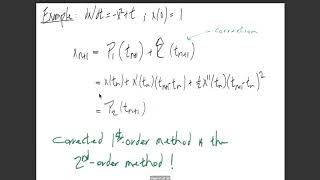 Example: dx/dt = -x² + t ; x(0) = 1
x_{n+1} = P_1(t_{n+1}) + Ê(t_{n+1})
correction
= x(t_n) + x'(t_n)(t_{n+1}-t_n) + ½x''(t_n)(t_{n+1}-t_n)²
= P_2(t_{n+1})
Corrected 1st-order method is the
2nd-order method!